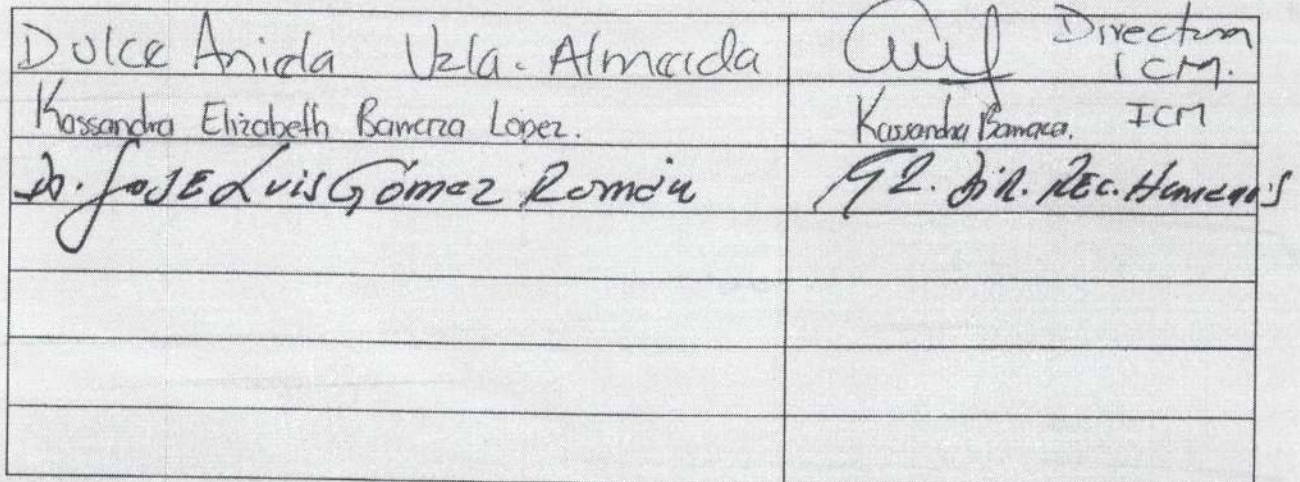 Dulce Aniela Vela. Almeida Directora ICM.
Kassandra Elizabeth Lopez. Kassandra ICM
Jose Luis Gómez Román DiR. REC. Humanos